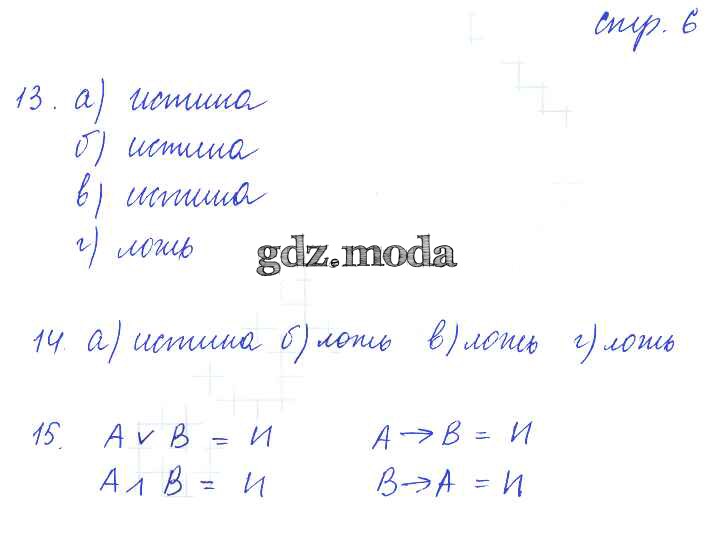 стр. 6
13. а) истина
б) истина
в) истина
г) ложь
gdz.moda
14. а) истина б) ложь в) ложь г) ложь
15. A ∨ B = И A → B = И
A ∧ B = И B → A = И